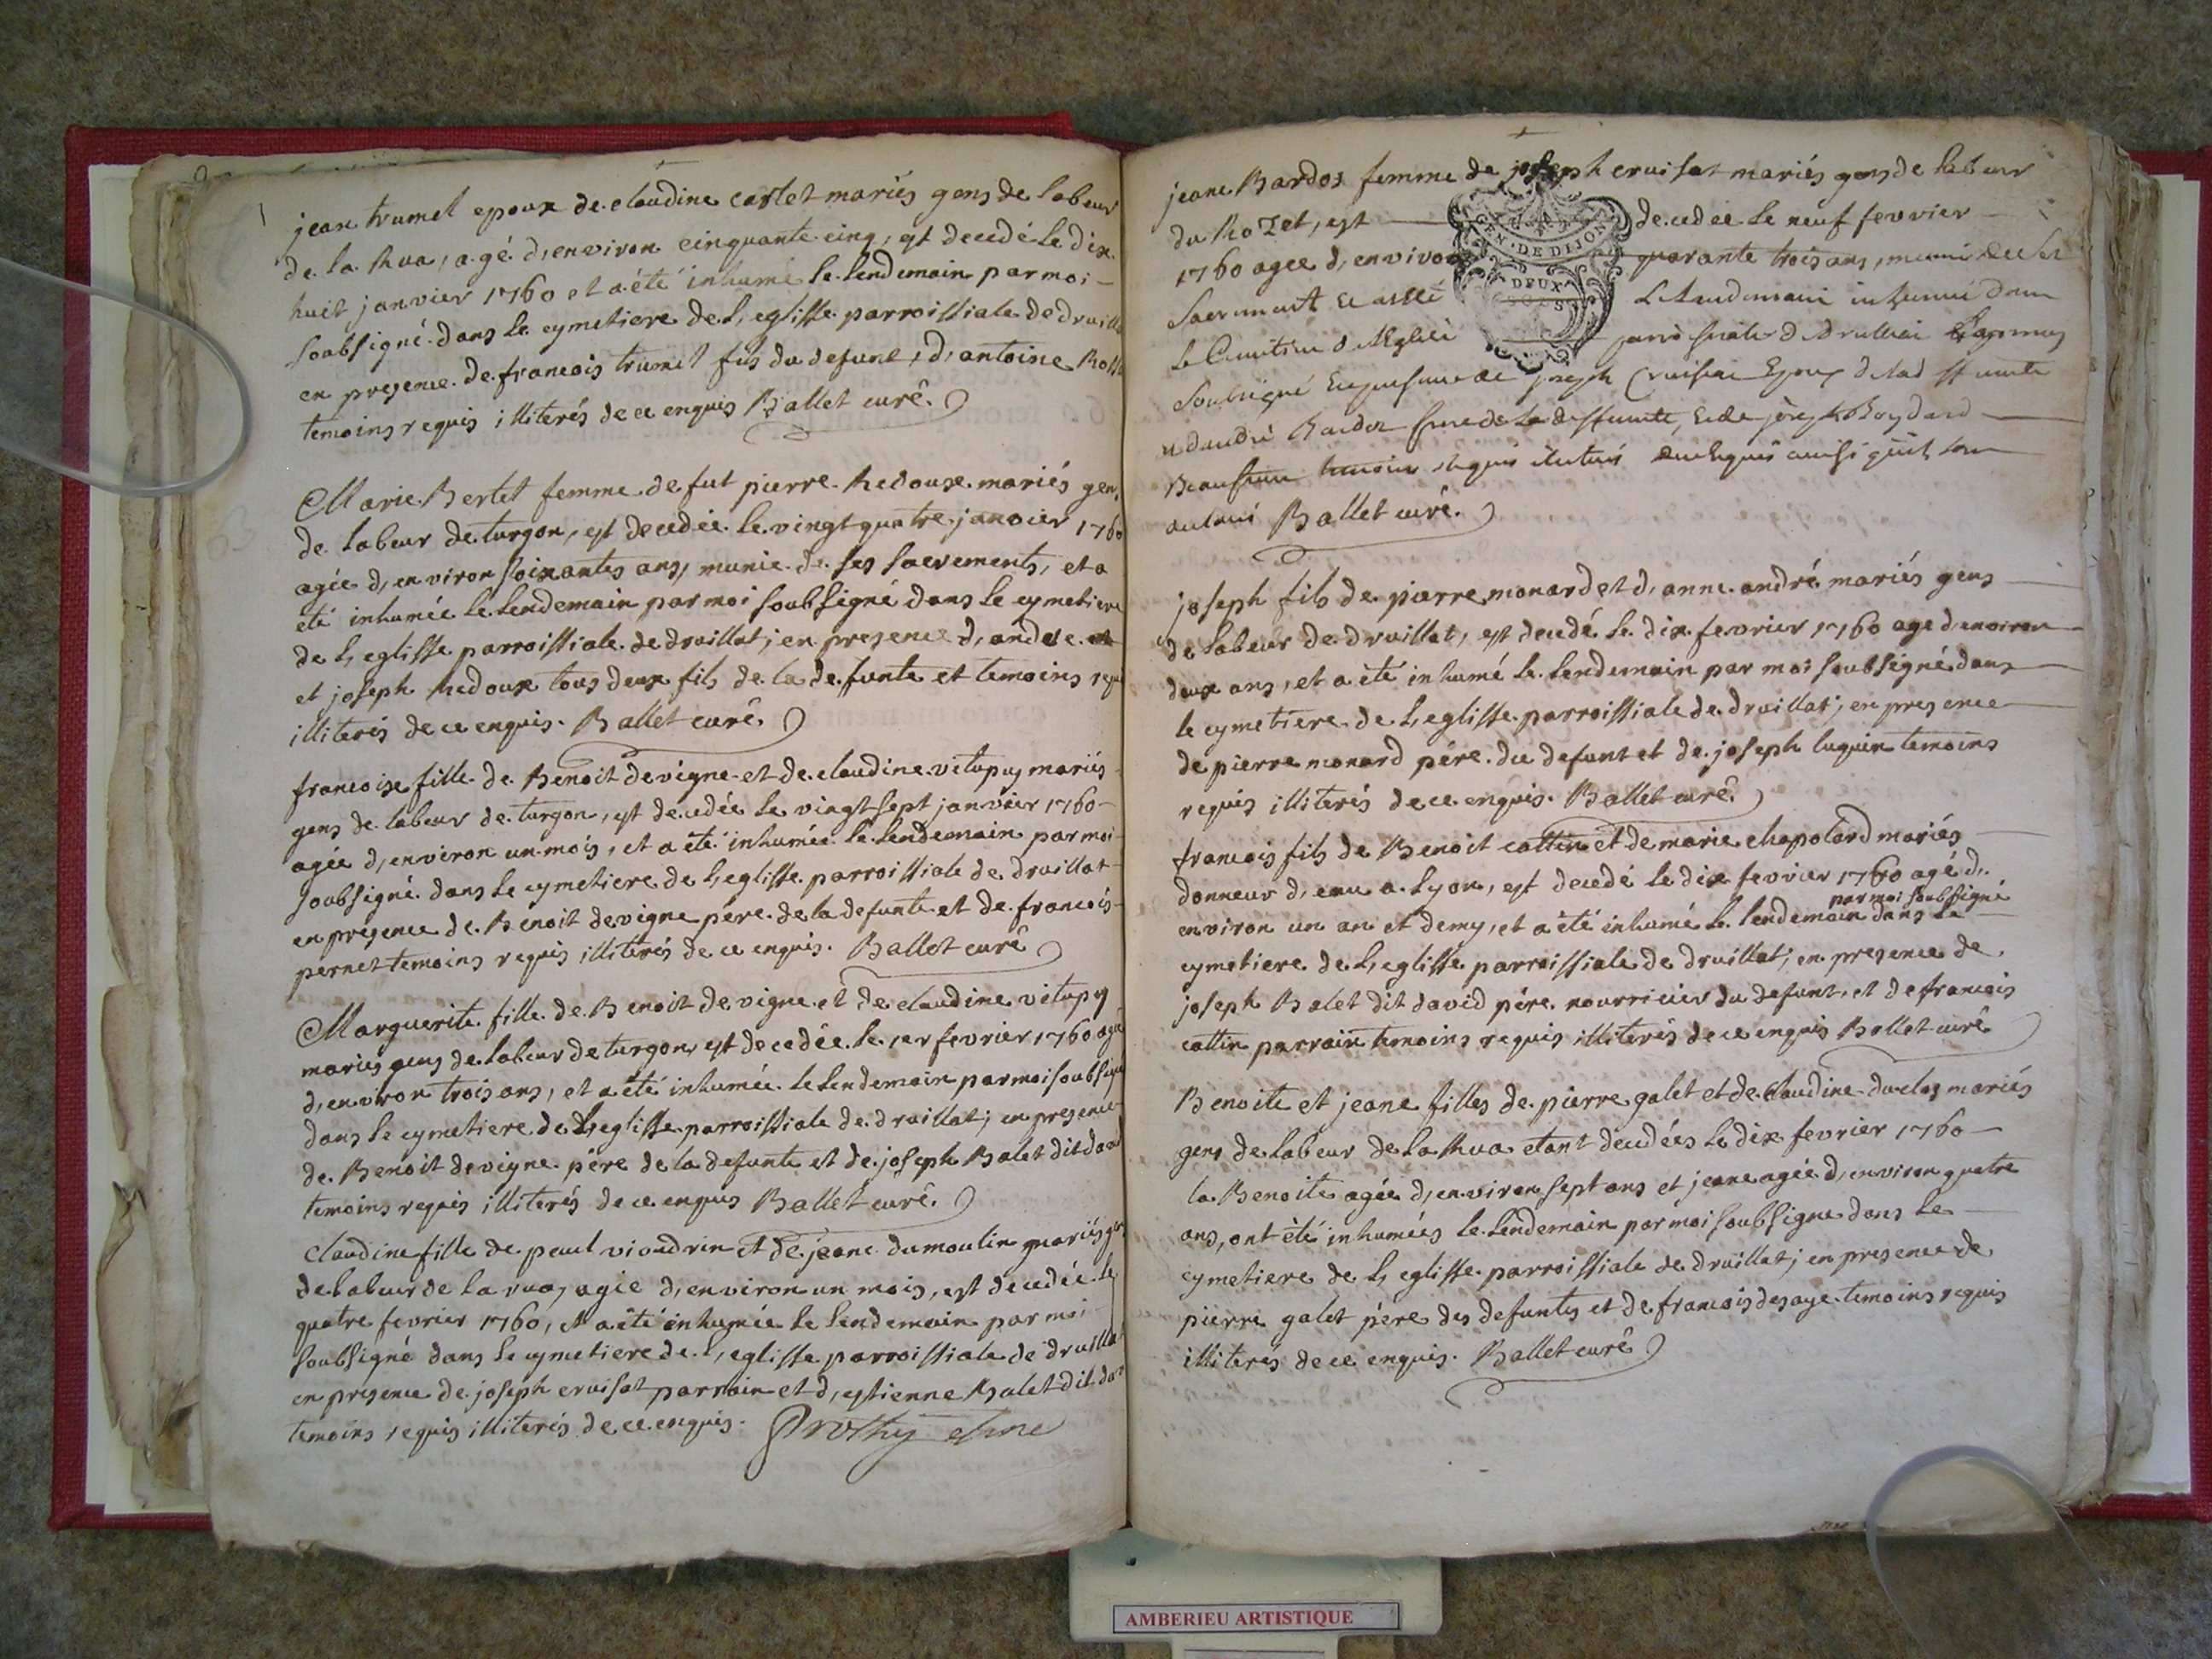 jean trumel epoux de claudine carlet mariés gens de labeur
de la Rua, agé d'environ cinquante cinq, est decedé le dix
huit janvier 1760 et a été inhumé le lendemain par moi
soubsigné dans le cymetiere de l'eglisse parroissiale de druillat
en presence de francois trumel fils du defunt, d'antoine
temoins requis illiterés de ce enquis Ballet curé.
Marie Bertet femme de fut pierre Redoux mariés gens
de labeur de turgon, est decedée le vingt quatre janvier 1760
agée d'environ soixantes ans, munie de ses sacrements, et a
été inhumée le lendemain par moi soubsigné dans le cymetiere
de l'eglisse parroissiale de druillat; en presence d'andré
et joseph Redoux tous deux fils de la defunte et temoins requis
illiterés de ce enquis. Ballet curé.
francoise fille de Benoit devigne et de claudine vitupuy mariés
gens de labeur de turgon, est decedée le vingt sept janvier 1760
agée d'environ un mois, et a été inhumée le lendemain par moi
soubsigné dans le cymetiere de l'eglisse parroissiale de druillat
en presence de Benoit devigne pére de la defunte et de francois
pernet temoins requis illiterés de ce enquis. Ballet curé
Marguerite fille de Benoit devigne et de claudine vitupuy
mariés gens de labeur de turgon, est decedée le 1er fevrier 1760 agée
d'environ trois ans, et a été inhumée le lendemain par moi soubsigné
dans le cymetiere de l'eglisse parroissiale de druillat; en presence
de Benoit devigne pére de la defunte et de joseph Balet dit david
temoins requis illiterés de ce enquis Ballet curé.
claudine fille de paul vioudrin et de jeane dumoulin mariés gens
de labeur de la rua, agée d'environ un mois, est decedée le
quatre fevrier 1760, et a été inhumée le lendemain par moi
soubsigné dans le cymetiere de l'eglisse parroissiale de druillat
en presence de joseph cruisat parrain et d'estienne Balet dit
temoins requis illiterés de ce enquis. Prothy
jeane Bardoz femme de joseph cruisat mariés gens de labeur
du Rozet, est decedée le neuf fevrier
1760 agée d'environ quarante trois ans, munie de ses
GEN. DE DIJON
DEUX SOLS
sacrement et a esté le lendemain inhumée dans
le Cimetiere de l'Eglise parroissiale de druillat
soubsigné en presence de joseph Cruisat Epoux de la deffunte
et d'andré Bardoz frere de la deffunte, et de joseph
temoins requis
Ballet curé.
joseph fils de pierre monard et d'anne andré mariés gens
de labeur de druillat, est decedé le dix fevrier 1760 agé d'environ
deux ans, et a été inhumé le lendemain par moi soubsigné dans
le cymetiere de l'eglisse parroissiale de druillat; en presence
de pierre monard pére du defunt et de joseph luquin temoins
requis illiterés de ce enquis. Ballet curé.
francois fils de Benoit cattin et de marie chapolard mariés
donneur d'eau a Lyon, est decedé le dix fevrier 1760 agé d'
par moi soubsigné
environ un an et demy, et a été inhumé le lendemain dans le
cymetiere de l'eglisse parroissiale de druillat; en presence de
joseph Balet dit david pére nourricier du defunt, et de francois
cattin parrain temoins requis illiterés de ce enquis Ballet curé
Benoite et jeane filles de pierre galet et de claudine duclos mariés
gens de labeur de la Rua etant decedées le dix fevrier 1760
la Benoite agée d'environ sept ans et jeane agée d'environ quatre
ans, ont été inhumées le lendemain par moi soubsigne dans le
cymetiere de l'eglisse parroissiale de druillat; en presence de
pierre galet pére des defuntes et de francois desaye temoins requis
illiterés de ce enquis. Ballet curé
AMBERIEU ARTISTIQUE